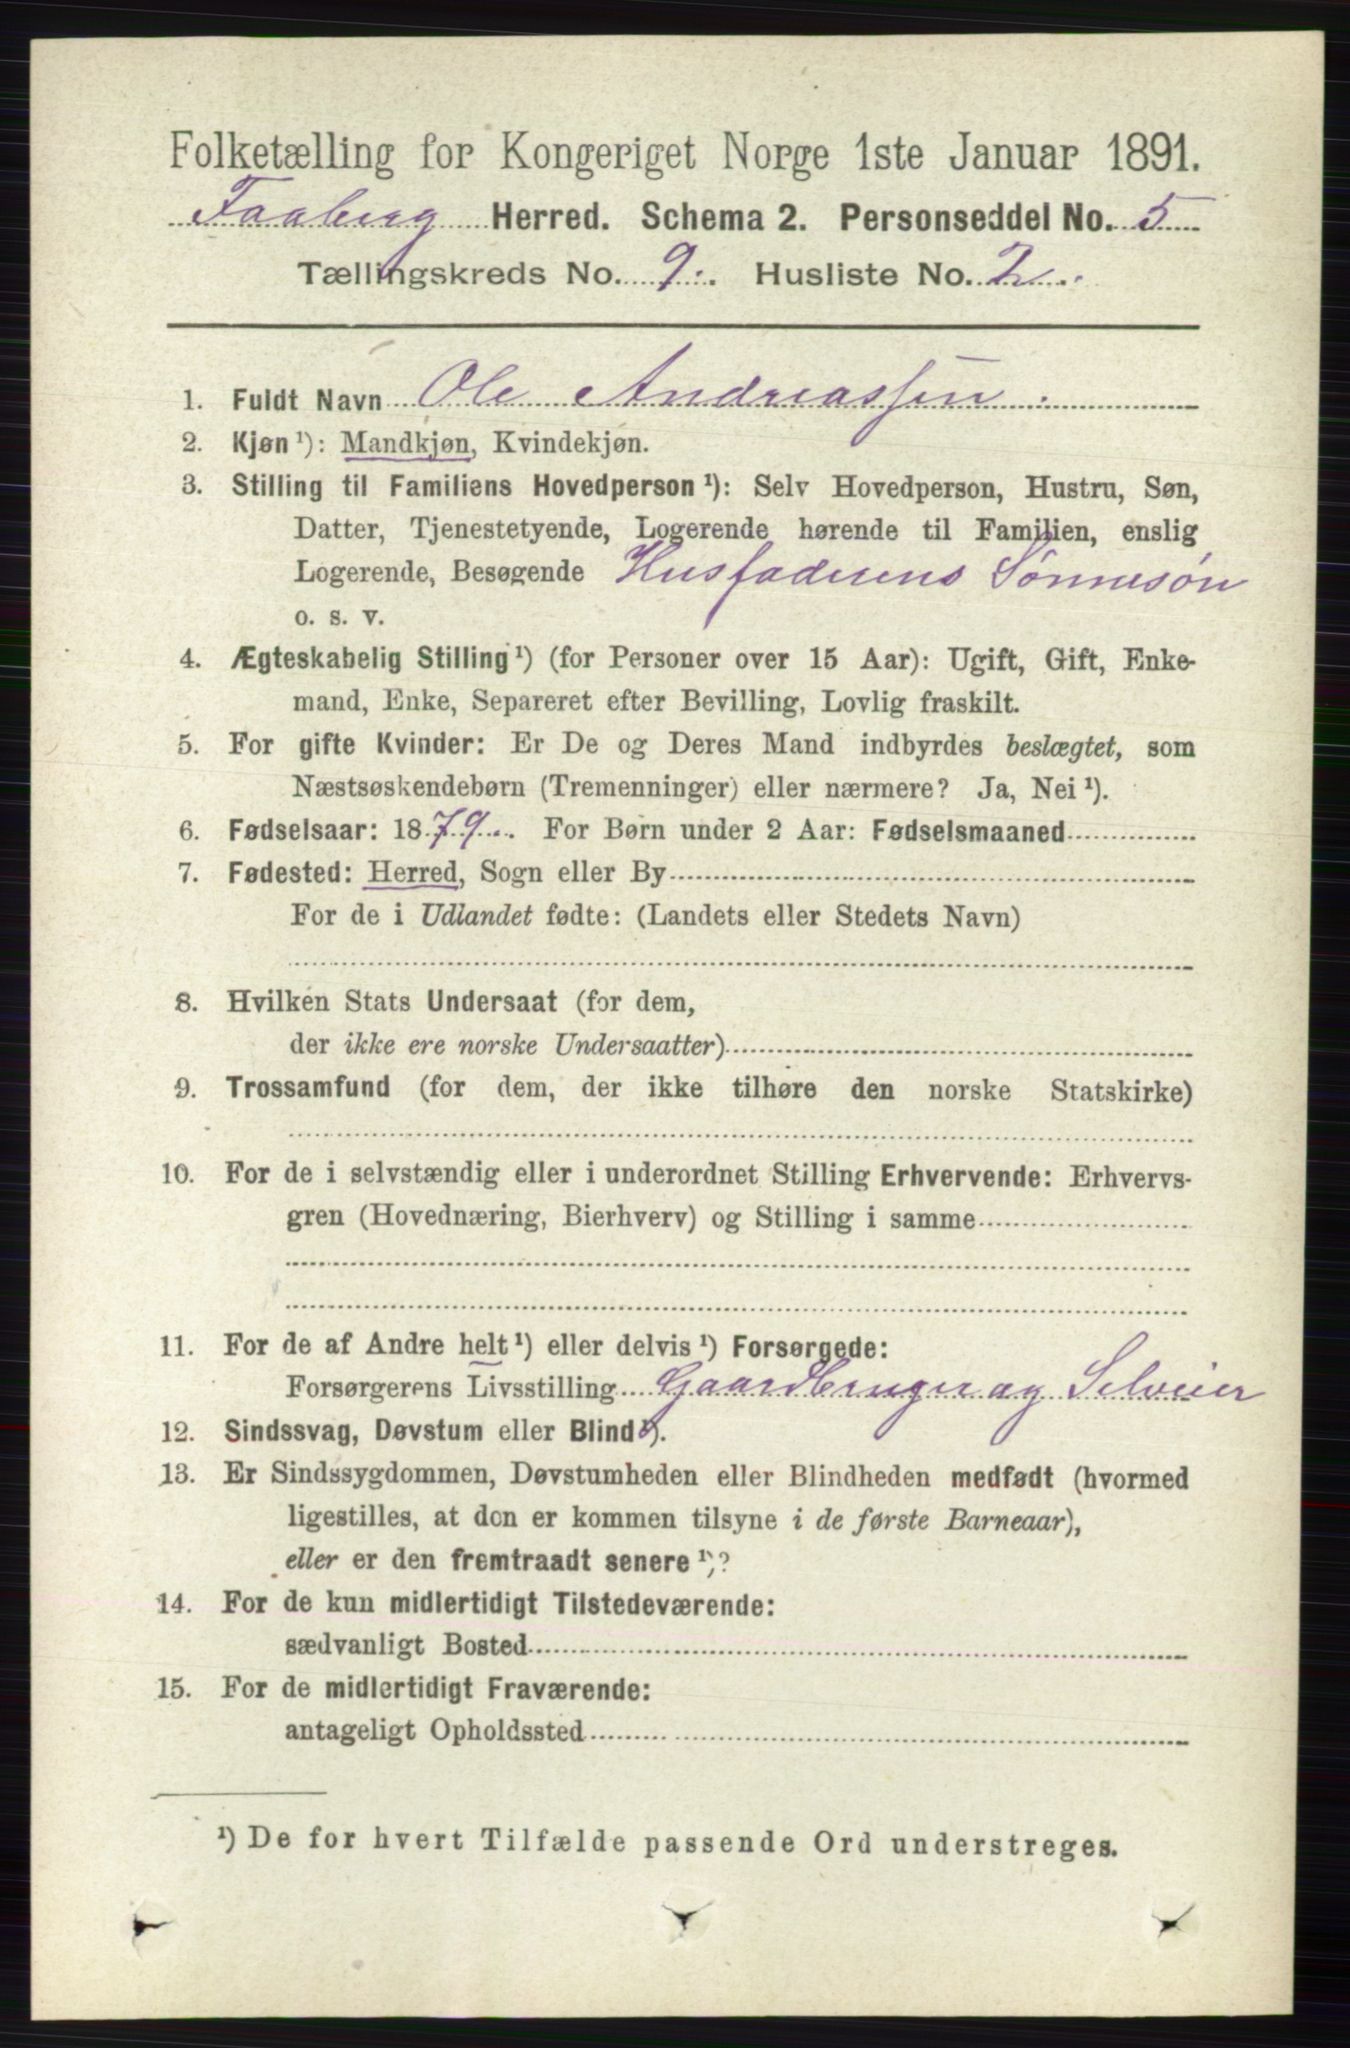 Folketælling for Kongeriget Norge 1ste Januar 1891.
Faaberg Herred. Schema 2. Personseddel No. 5
Tællingskreds No. 9. Husliste No. 2
1. Fuldt Navn Ole Andreassen
2. Kjøn ¹): Mandkjøn, Kvindekjøn.
3. Stilling til Familiens Hovedperson ¹): Selv Hovedperson, Hustru, Søn,
Datter, Tjenestetyende, Logerende hørende til Familien, enslig
Logerende, Besøgende Husfaderens Sønnesøn
o. s. v.
4. Ægteskabelig Stilling ¹) (for Personer over 15 Aar): Ugift, Gift, Enke-
mand, Enke, Separeret efter Bevilling, Lovlig fraskilt.
5. For gifte Kvinder: Er De og Deres Mand indbyrdes beslægtet, som
Næstsøskendebørn (Tremenninger) eller nærmere? Ja, Nei ¹).
6. Fødselsaar: 1879. For Børn under 2 Aar: Fødselsmaaned
7. Fødested: Herred, Sogn eller By
For de i Udlandet fødte: (Landets eller Stedets Navn)
8. Hvilken Stats Undersaat (for dem,
der ikke ere norske Undersaatter)
9. Trossamfund (for dem, der ikke tilhøre den norske Statskirke)
10. For de i selvstændig eller i underordnet Stilling Erhvervende: Erhvervs-
gren (Hovednæring, Bierhverv) og Stilling i samme
11. For de af Andre helt ¹) eller delvis ¹) Forsørgede:
Forsørgerens Livsstilling Gaardbruger og Selveier
12. Sindssvag, Døvstum eller Blind ¹).
13. Er Sindssygdommen, Døvstumheden eller Blindheden medfødt (hvormed
ligestilles, at den er kommen tilsyne i de første Barneaar),
eller er den fremtraadt senere ¹)?
14. For de kun midlertidigt Tilstedeværende:
sædvanligt Bosted
15. For de midlertidigt Fraværende:
antageligt Opholdssted
¹) De for hvert Tilfælde passende Ord understreges.